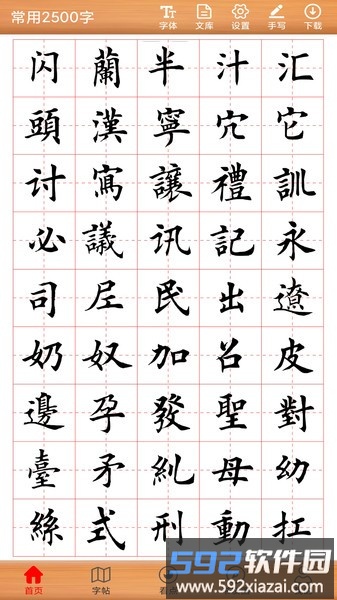 常用2500字
字体 文库 设置 手写 下载
闪 蘭 半 汁 汇
頭 漢 寧 穴 它
讨 寫 讓 禮 訓
必 議 讯 記 永
司 尼 民 出 遼
奶 奴 加 召 皮
邊 孕 發 聖 對
臺 矛 糾 母 幼
絲 式 刑 動 扛
592软件园
www.592xiazai.com
首页 字帖